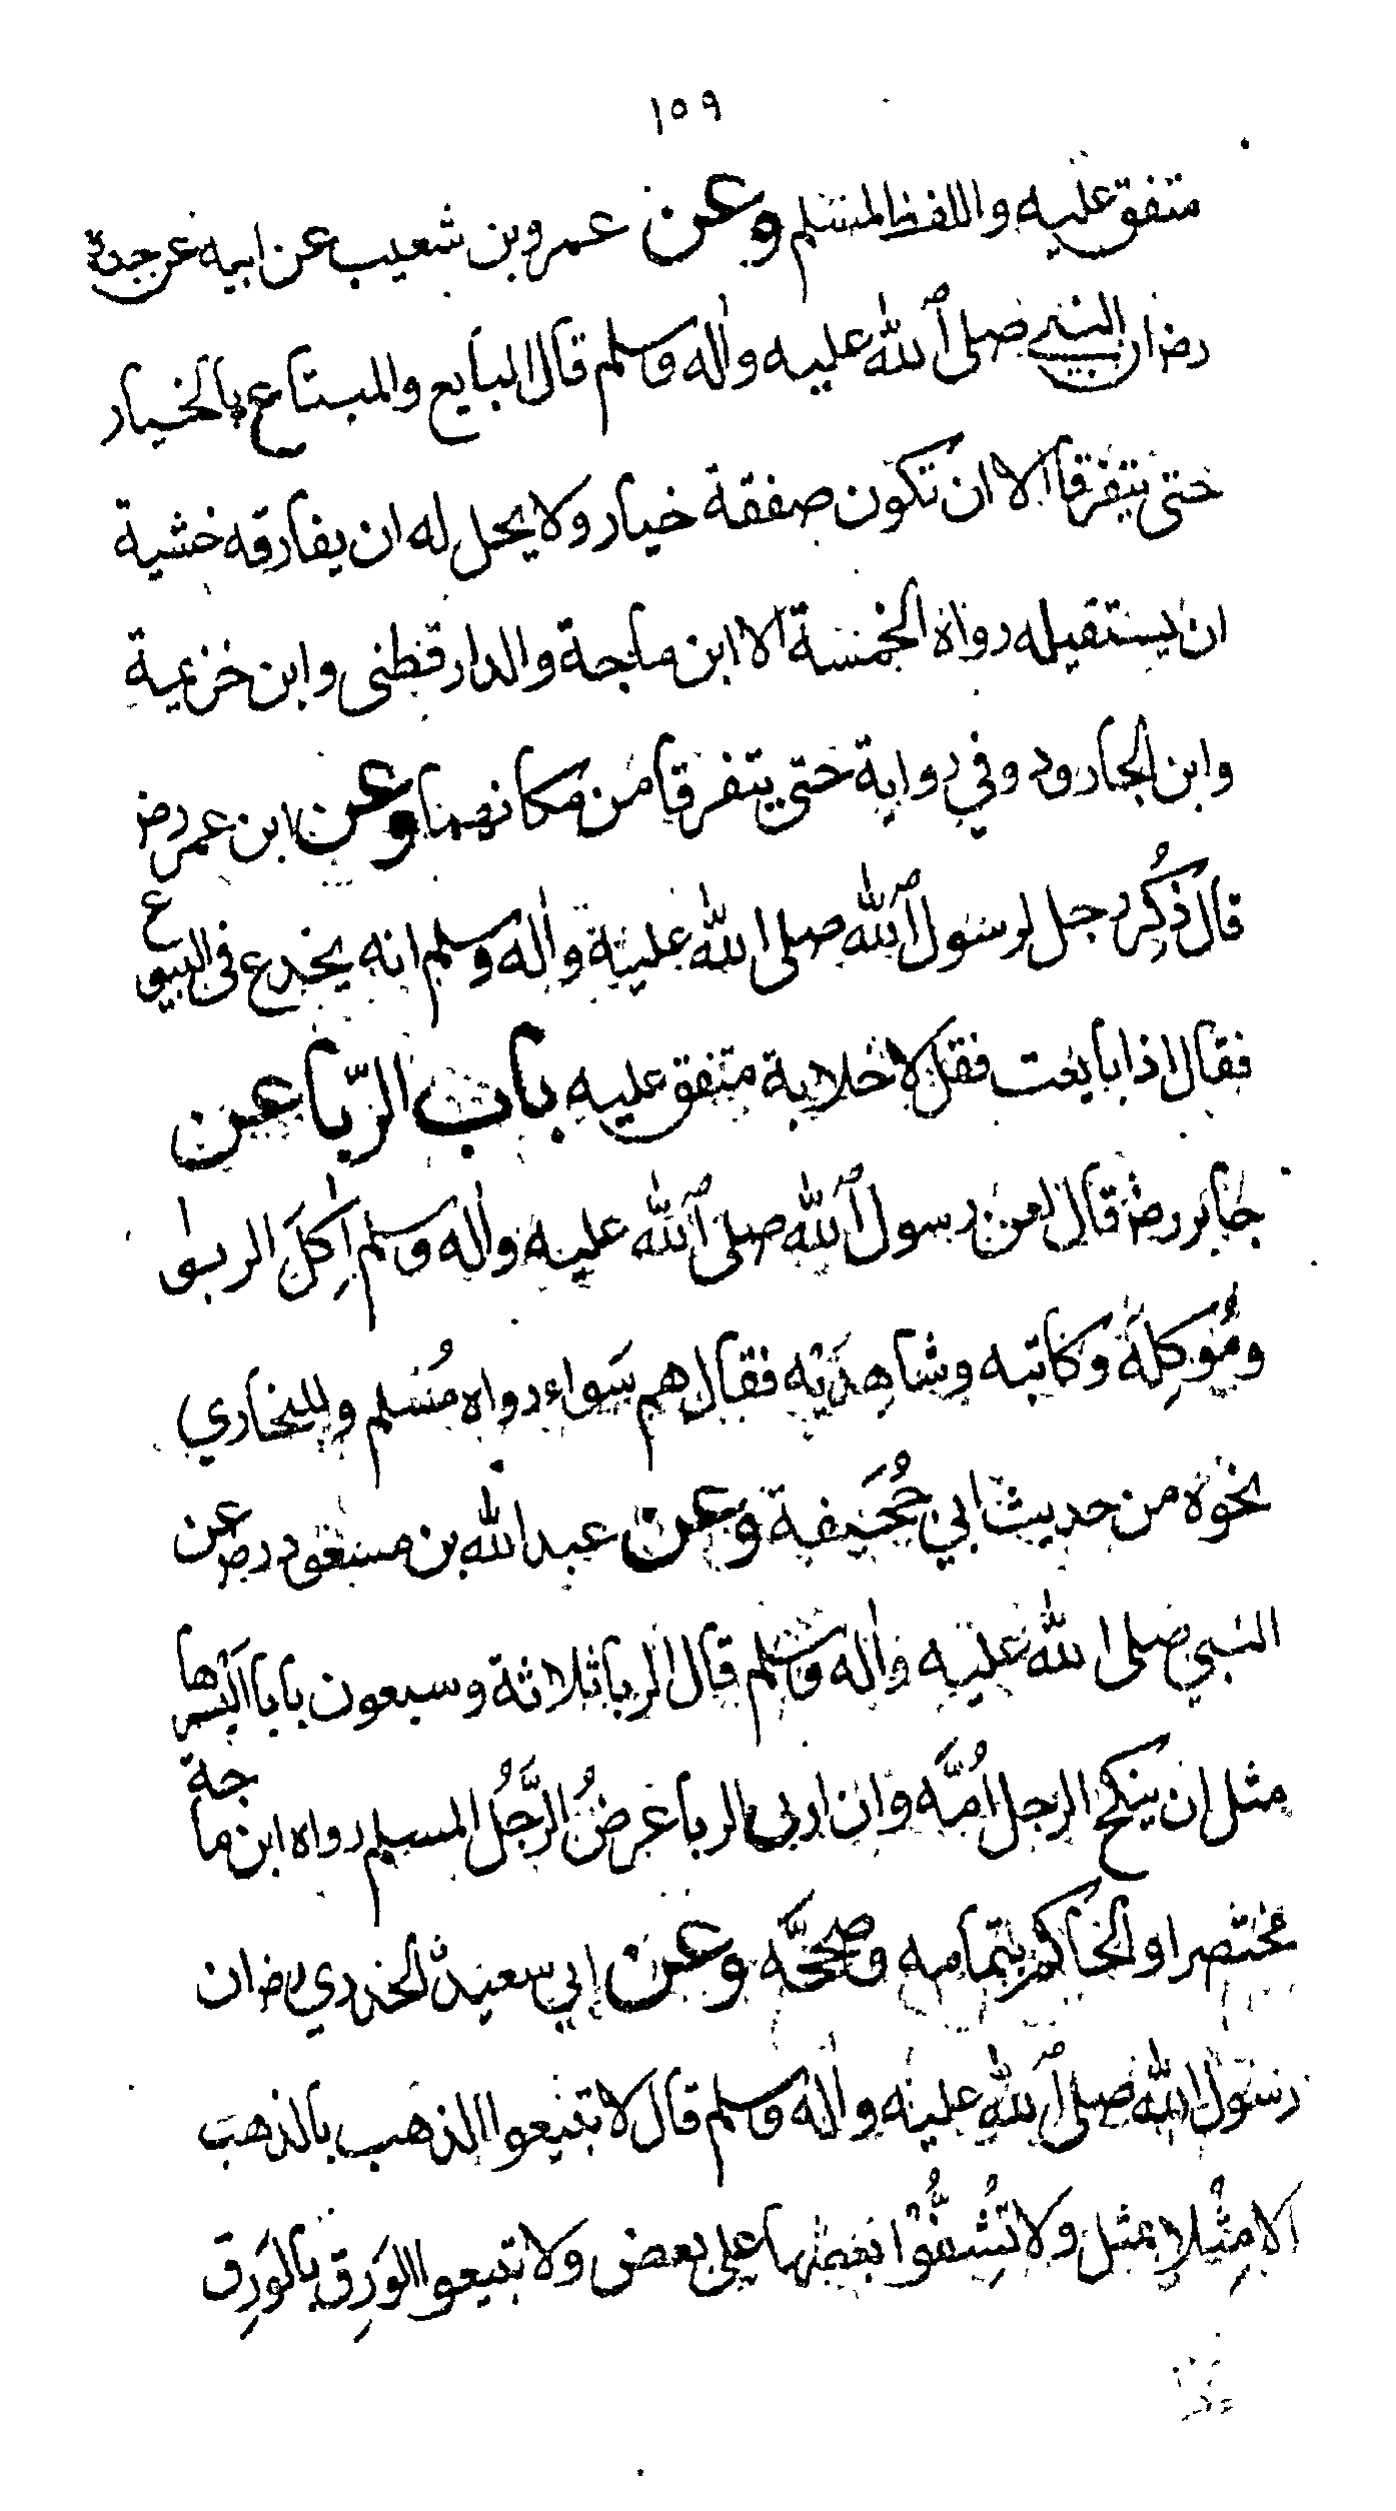 ١٥٩
متفق عليه واللفظ لمسلم وعن عمرو بن شعيب عن ابيه عن جده
رض ان النبي صلى الله عليه واله وسلم قال البايع والمبتاع بالخيار
حتى يتفرقا الا ان تكون صفقة خيار ولا يحل له ان يفارقه خشية
ان يستقيله رواه الخمسة الا ابن ماجة والدارقطنى وابن خزيمة
وابن الجارود وفي رواية حتى يتفرقا من مكانهما وعن ابن عمر رض
قال ذُكِر رجل لرسول الله صلى الله عليه واله وسلم انه يخدع فى البيوع
فقال اذا بايعت فقل لا خلابة متفق عليه باب الرّبا عن
جابر رض قال لعن رسول الله صلى الله عليه واله وسلم اٰكِلَ الربوا
ومُوكِلَهُ وكاتبه وشاهِدَيْه فقال هم سَواء رواه مُسلم وللبخاري
نحوه من حديث ابي جُحَيفة وعن عبد الله بن مسعود رض عن
النبي صلى الله عليه واله وسلم قال الربا ثلاثة وسبعون بابا ايسرها
مثل ان ينكح الرجل اُمَّه وان اربى الربا عرضُ الرَّجُل المسلم رواه ابن ماجة
مختصرا والحاكم بتمامه وصحَّحَه وعن ابي سعيد الخدري رض ان
رسول الله صلى الله عليه واله وسلم قال لا تبيعوا الذهب بالذهب
الا مِثْلا بمثل ولا تُشِفُّوْا بعضها على بعض ولا تبيعوا الوَرِق بالوَرِق